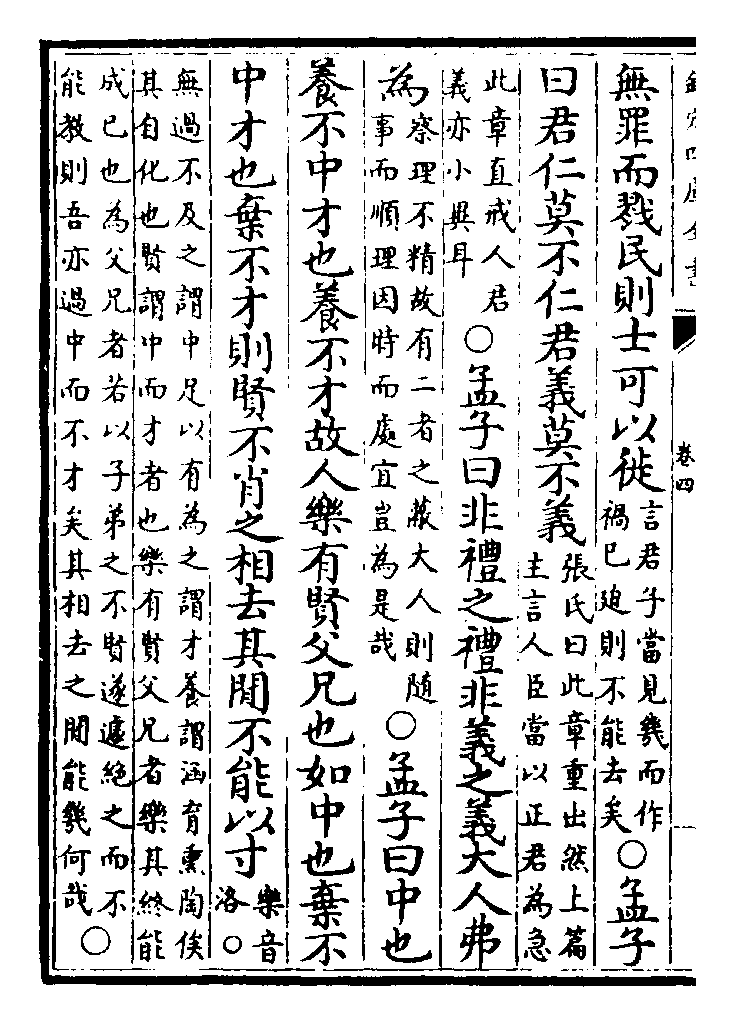 欽定四庫全書
卷四
無罪而戮民則士可以徙
言君子當見幾而作
禍已迫則不能去矣
○孟子
曰君仁莫不仁君義莫不義
張氏曰此章重出然上篇
主言人臣當以正君為急
此章直戒人君
義亦小異耳
○孟子曰非禮之禮非義之義大人弗
為
察理不精故有二者之蔽大人則隨
事而順理因時而處宜豈為是哉
○孟子曰中也
養不中才也養不才故人樂有賢父兄也如中也棄不
中才也棄不才則賢不肖之相去其間不能以寸
樂音
洛○
無過不及之謂中足以有為之謂才養謂涵育熏陶俟
其自化也賢謂中而才者也樂有賢父兄者樂其終能
成已也為父兄者若以子弟之不賢遂遽絶之而不
能教則吾亦過中而不才矣其相去之間能幾何哉
○